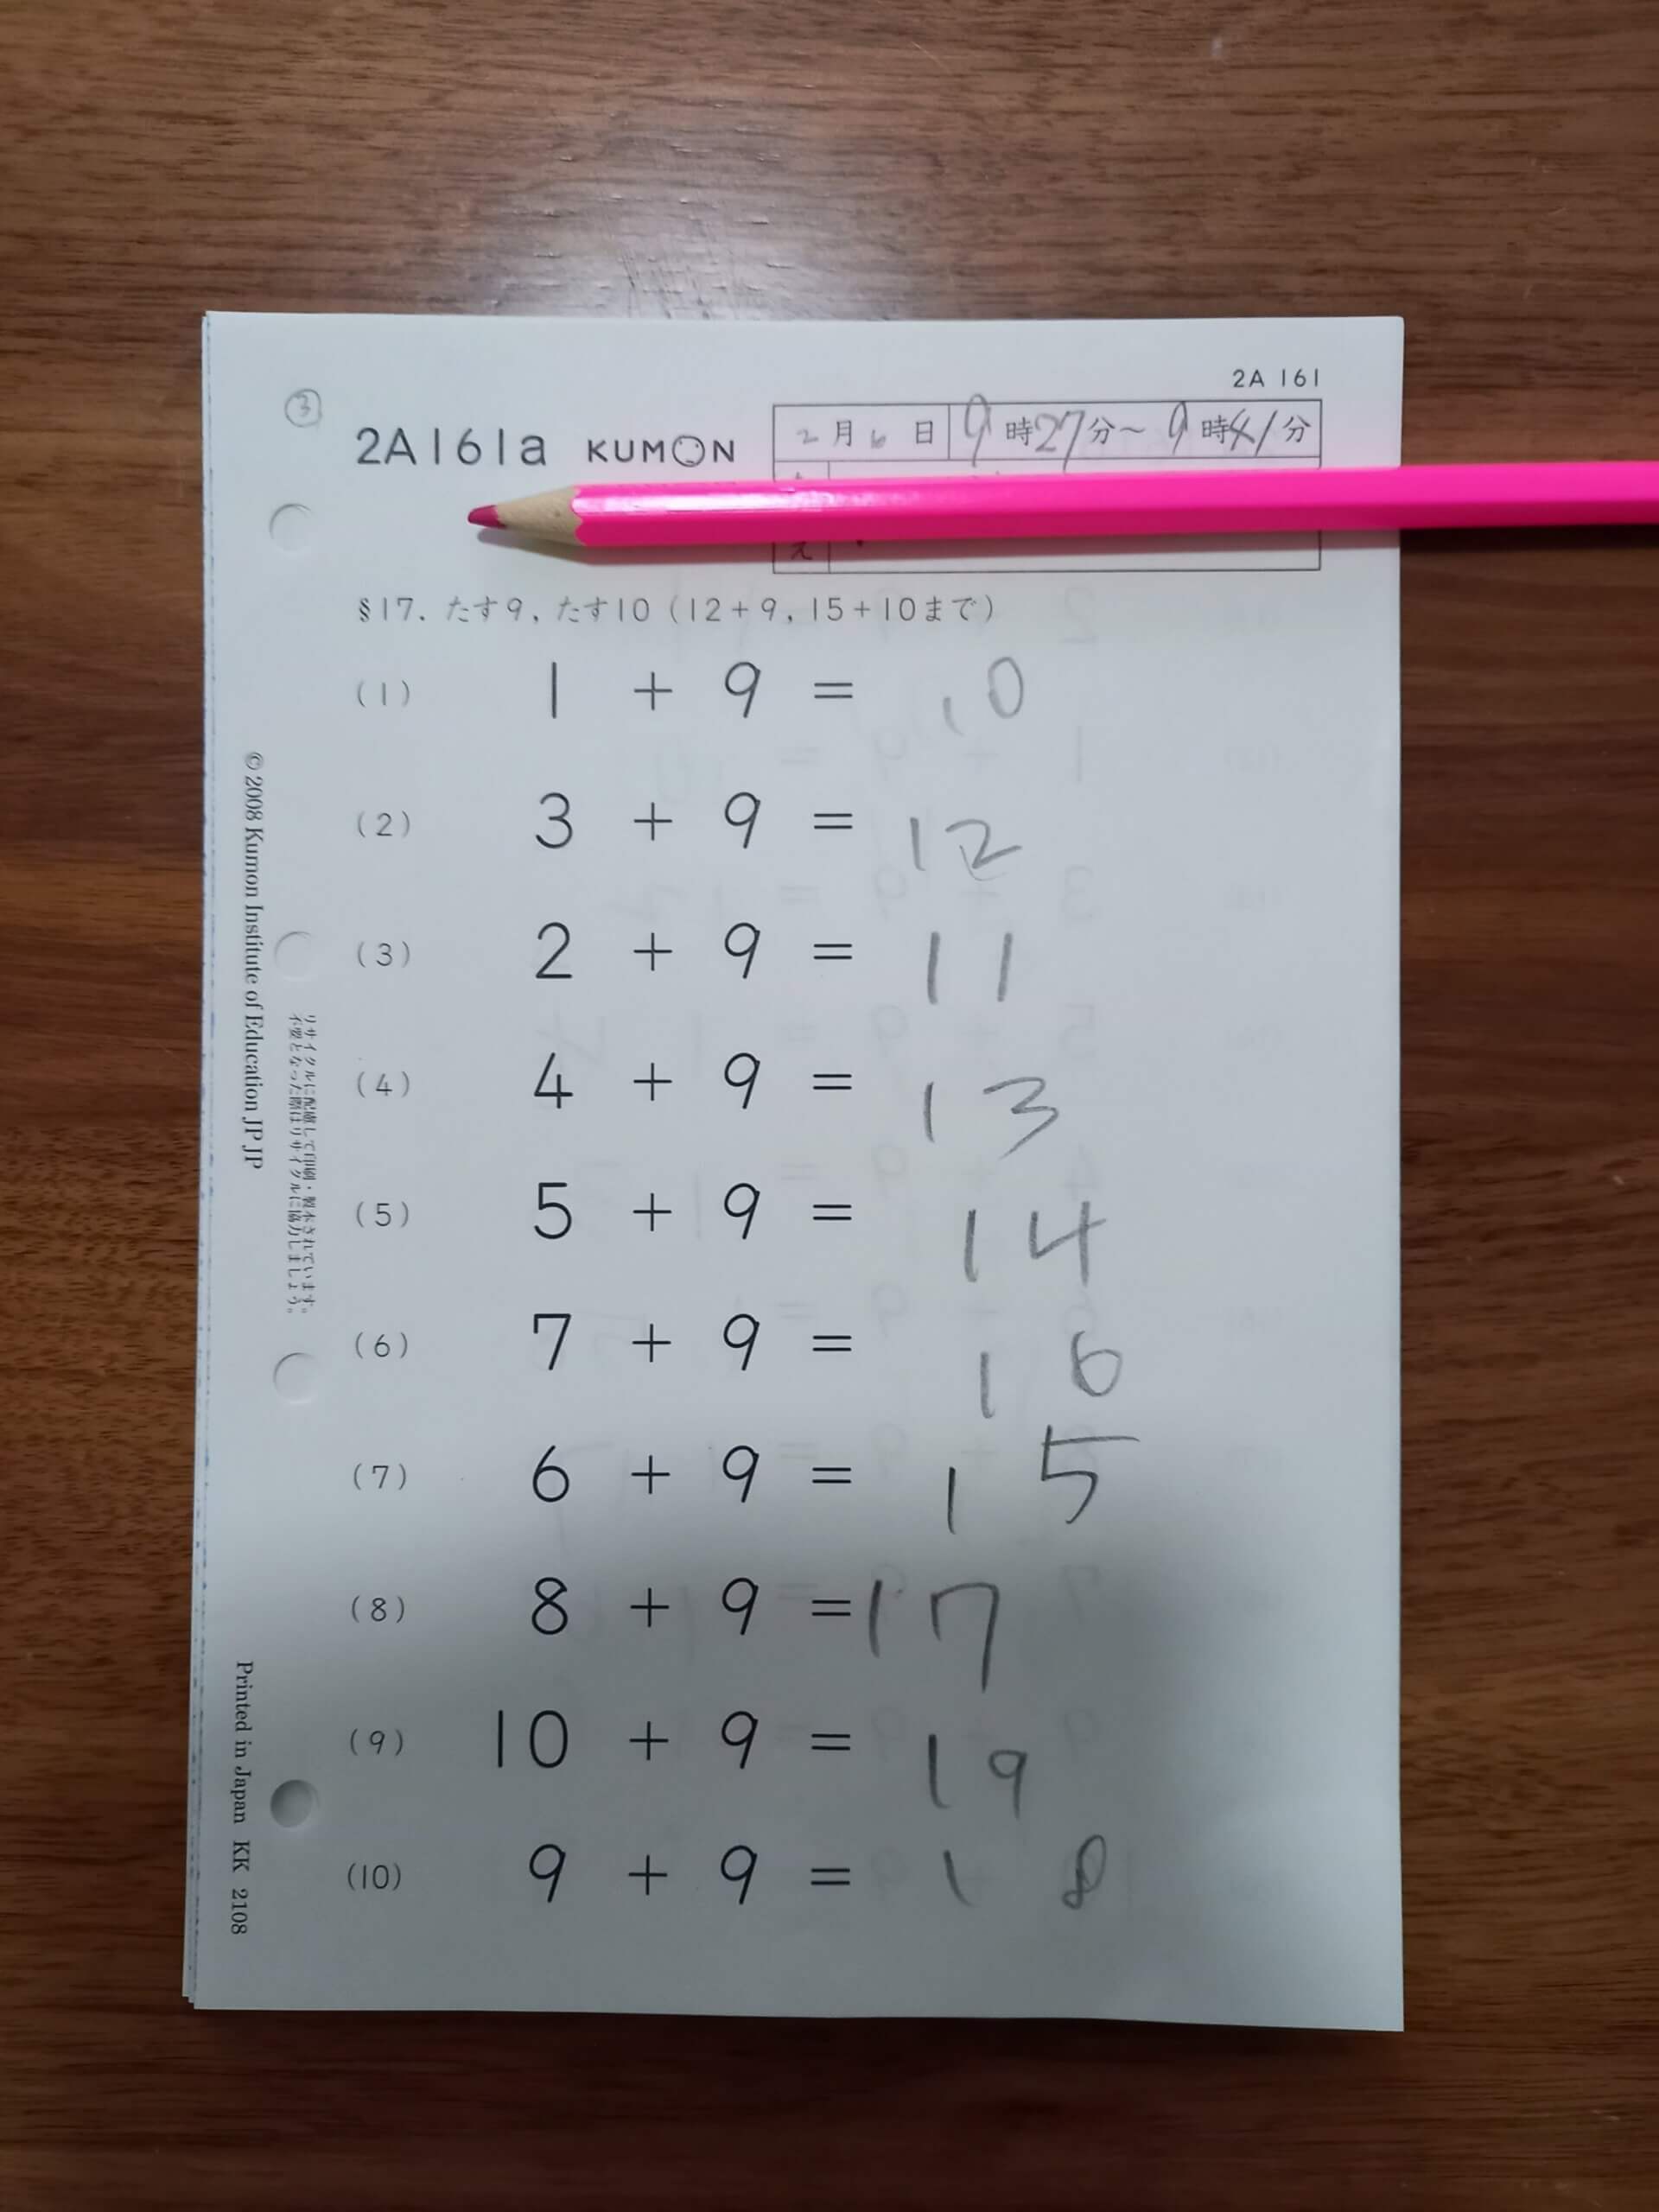 2A 161
③
2A161a KUMON
2月6日 9時27分～9時41分
え
§17. たす9, たす10 (12+9, 15+10まで)
(1) 1 + 9 = 10
(2) 3 + 9 = 12
(3) 2 + 9 = 11
(4) 4 + 9 = 13
(5) 5 + 9 = 14
(6) 7 + 9 = 16
(7) 6 + 9 = 15
(8) 8 + 9 = 17
(9) 10 + 9 = 19
(10) 9 + 9 = 18
© 2008 Kumon Institute of Education JP.JP
リサイクルに配慮して印刷・製本されています。
不要となった際はリサイクルに協力しましょう。
Printed in Japan KK 2108